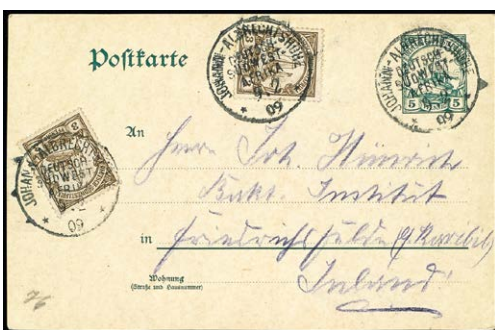 Postkarte
JOHANN-ALBRECHTSHÖHE
DEUTSCH-
SÜDWEST
AFRIKA
9.2
09
JOHANN-ALBRECHTSHÖHE
DEUTSCH-
SÜDWEST
AFRIKA
9.2
09
5 5
3
JOHANN-ALBRECHTS
DEUTSCH-
SÜDWEST
AFRIKA
09
An
Herrn Dr. Hinrichs
Bakt. Institut
in Friedrichsfelde (Karibib)
Wohnung
(Straße und Hausnummer)
Inland